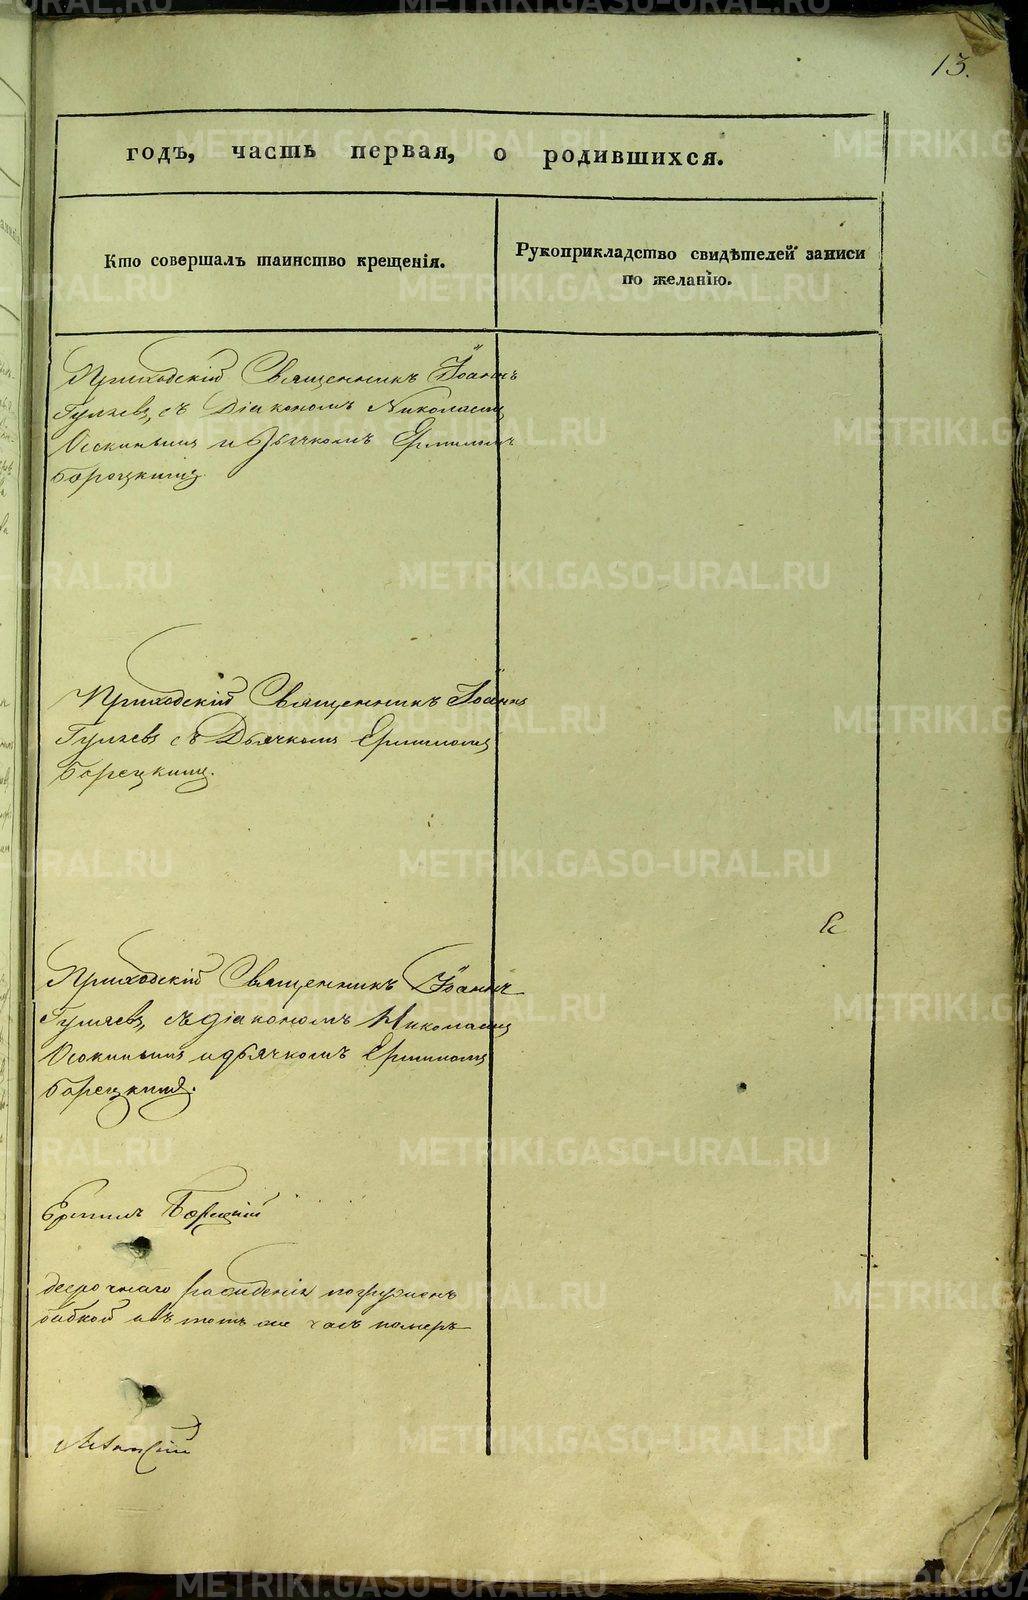 13.
годъ, часть первая, о родившихся.
Кто совершалъ таинство крещенія.
Рукоприкладство свидѣтелей записи
по желанію.
Приходскій Священникъ Іоаннъ
Гуляевъ, съ Діакономъ Николаемъ
Осокинымъ и Дьячкомъ Ермиломъ
Борецкимъ
Приходскій Священникъ Іоаннъ
Гуляевъ съ Дьячкомъ Ермиломъ
Борецкимъ.
Приходскій Священникъ Іоаннъ
Гуляевъ, съ діакономъ Николаемъ
Осокинымъ и дьячкомъ Ермиломъ
Борецкимъ.
Ермилъ Борецкій
погруженъ
бабкой и въ тотъ же часъ померъ
METRIKI.GASO-URAL.RU